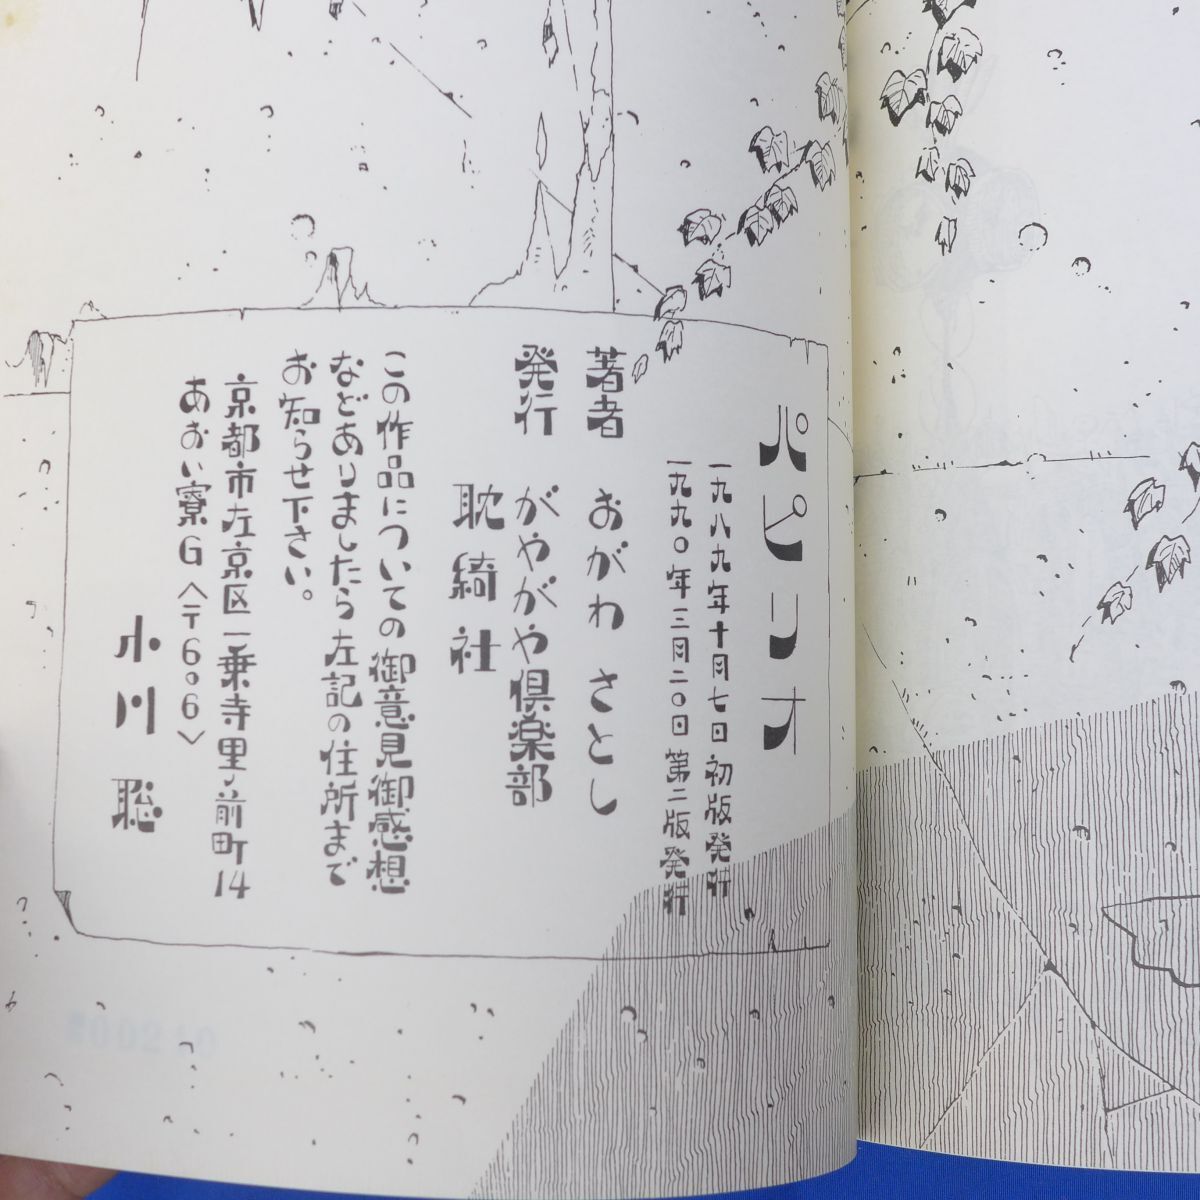 パピリオ
一九八九年十月七日 初版発行
一九九〇年三月二〇日 第二版発行
著者 おがわ さとし
発行 がやがや倶楽部
耽綺社
この作品についての御意見御感想
などありましたら左記の住所まで
お知らせ下さい。
京都市左京区一乗寺里ノ前町14
あおい寮G〈〒606〉
小川 聡